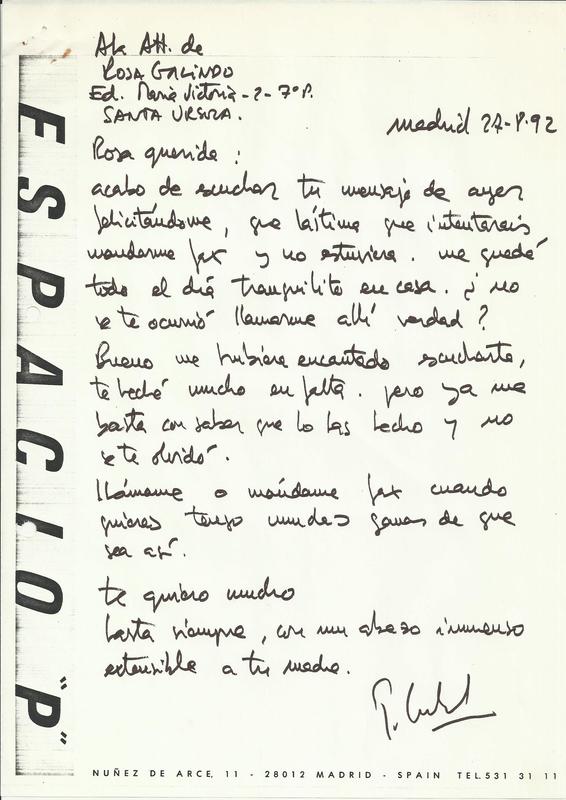 A la Att. de
ROSA GALINDO
Ed. María Victoria - 2 - 7º P.
SANTA URSULA.
Madrid 27-8-92
Rosa querida :
acabo de escuchar tu mensaje de ayer
felicitándome, que lástima que intentarais
mandarme fax y no estuviera. me quedé
todo el día tranquilito en casa. ¿ no
se te ocurrió llamarme allí verdad ?
Bueno me hubiera encantado escucharte,
te heché mucho en falta. pero ya me
basta con saber que lo has hecho y no
se te olvidó.
llámame o mándame fax cuando
quieras tengo muchas ganas de que
sea así.
te quiero mucho
hasta siempre, con un abrazo inmenso
extensible a tu madre.
ESPACIO "P"
NUÑEZ DE ARCE, 11 - 28012 MADRID - SPAIN TEL. 531 31 11